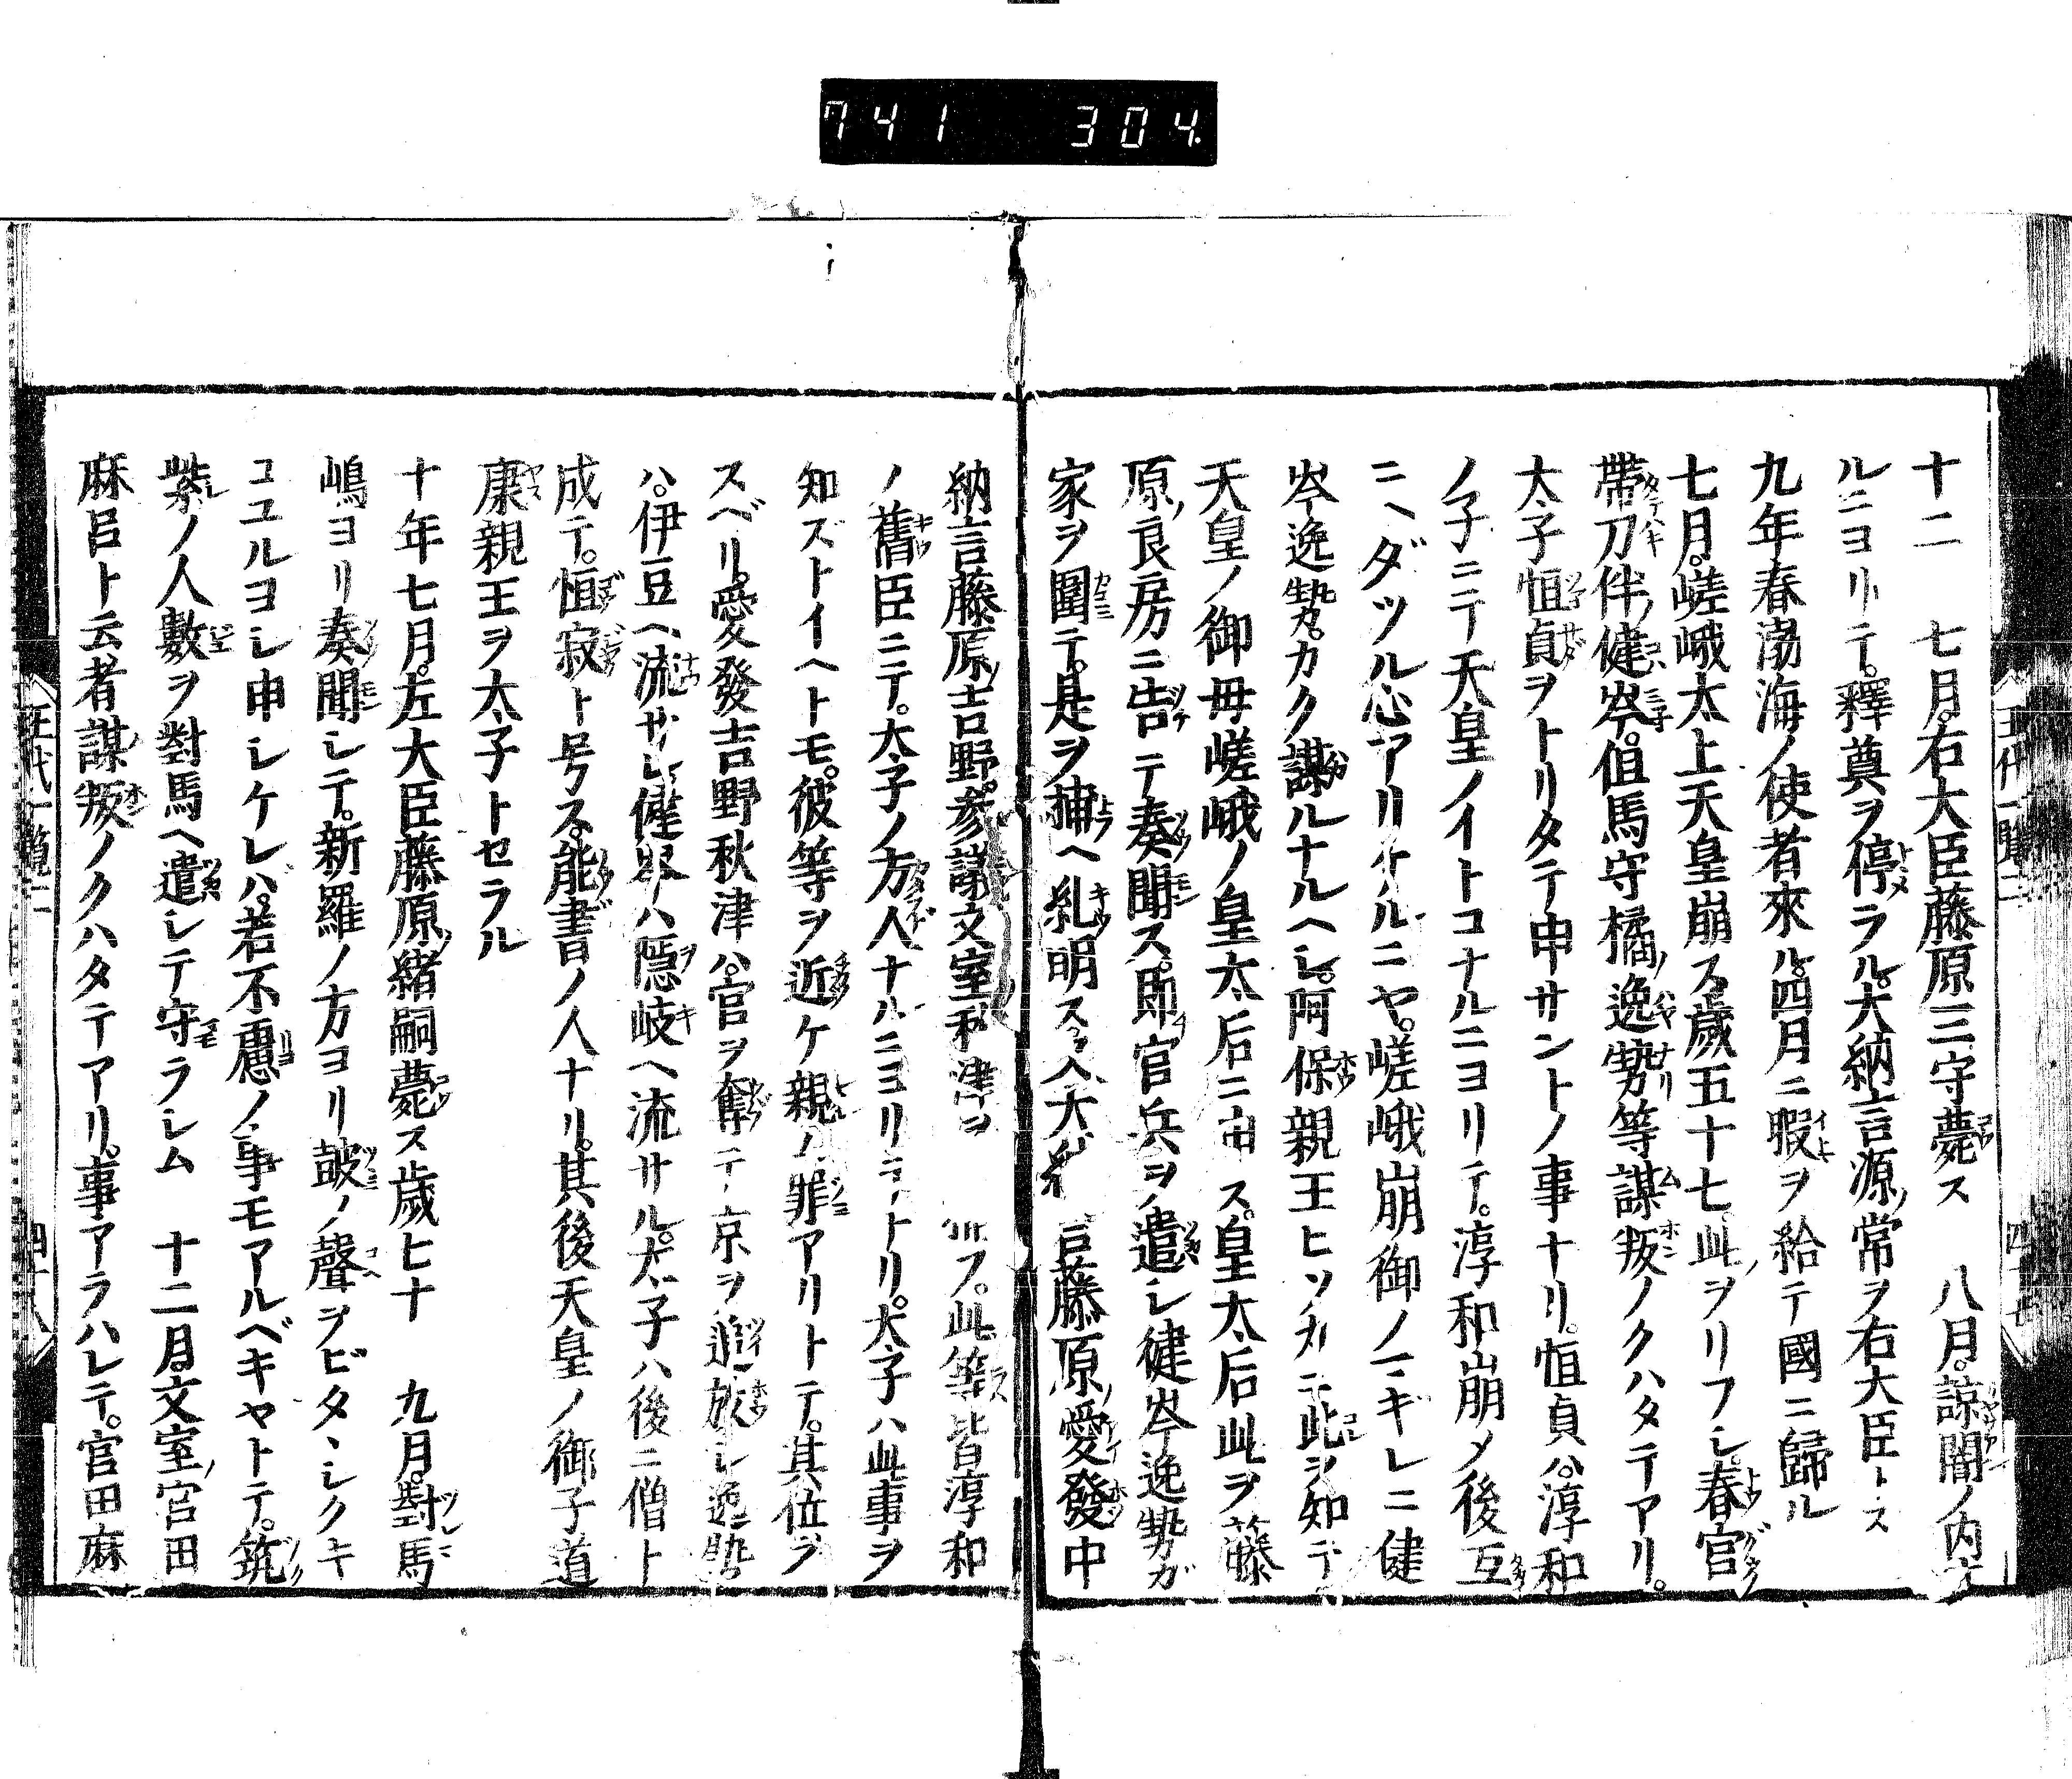 741 304
十二 七月。右大臣藤原三守薨ス 八月。諒闇ノ内ナ
ルニヨリテ。釋奠ヲ停ラル。大納言源ノ常ヲ右大臣トス
九年春渤海ノ使者來ル。四月ニ暇ヲ給テ國ニ歸ル
七月。嵯峨太上天皇崩ス歳五十七。此ヲリフシ。春宮
帶刀伴ノ健岑。但馬守橘ノ逸勢等謀叛ノクハタテアリ。
太子恒貞ヲトリタテ申サントノ事ナリ。恒貞ハ。淳和
ノ子ニテ天皇ノイトコナルニヨリテ。淳和崩メ後互
ニヘダツル心アリケルニヤ。嵯峨崩御ノマギレニ健
岑逸勢カク謀ルナルヘシ。阿保親王ヒソカニ此ヲ知テ
天皇ノ御母嵯峨ノ皇太后ニ申ス。皇太后此ヲ藤
原ノ良房ニ告テ奏聞ス。即官兵ヲ遣シ健岑逸勢ガ
家ヲ圍テ。是ヲ捕ヘ糺明ス又大納言藤原ノ愛發中
納言藤原ノ吉野。参議文室秋津ヲ 此等皆淳和
ノ舊臣ニテ。太子ノ方人ナルニヨリテトリ。太子ハ此事ヲ
知ズトイヘトモ。彼等ヲ近ケ親ノ罪アリトテ。其位ヲ
スベリ。愛發吉野秋津ハ。官ヲ奪テ京ヲ追放シ逸勢
ハ。伊豆ヘ流サレ健岑ハ隠岐ヘ流サル。太子ハ後ニ僧ト
成テ。恒寂ト号ス。能書ノ人ナリ。其後天皇ノ御子道
康親王ヲ太子トセラル
十年七月。左大臣藤原ノ緒嗣薨ス歳七十 九月。對馬
嶋ヨリ奏聞シテ。新羅ノ方ヨリ鼓ノ聲ヲビタヽシクキ
コユルヨシ申シケレバ。若不慮ノ事モアルベキヤトテ。筑
紫ノ人數ヲ對馬ヘ遣シテ守ラシム 十二月。文室ノ宮田
麻呂ト云者謀叛ノクハタテアリ。事アラハレテ。宮田麻
王代一覧二 四十八